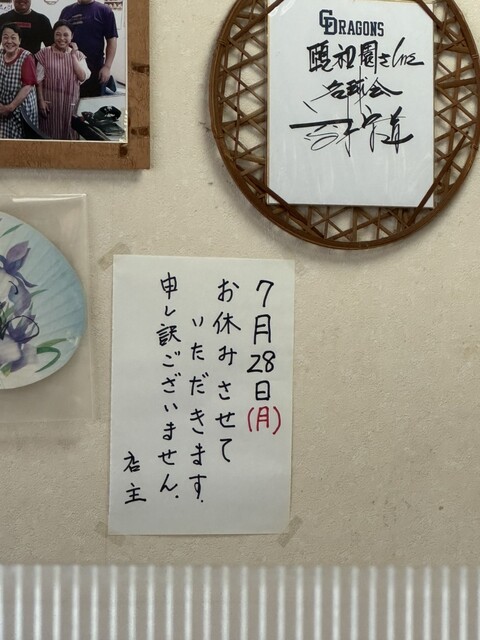 DRAGONS
頤和園さん江
名球会
7月28日(月)
お休みさせて
いただきます.
申し訳ございません.
店主